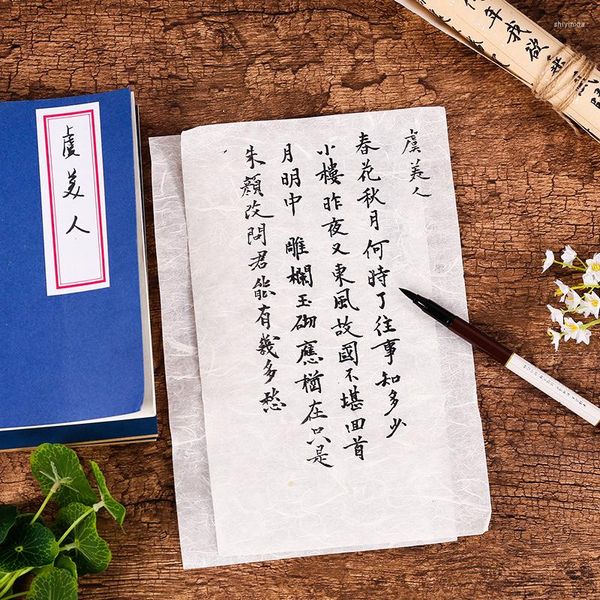 虞美人
春花秋月何時了往事知多少
小樓昨夜又東風故國不堪回首
月明中 雕欄玉砌應猶在只是
朱顏改問君能有幾多愁
虞美人
年我欲